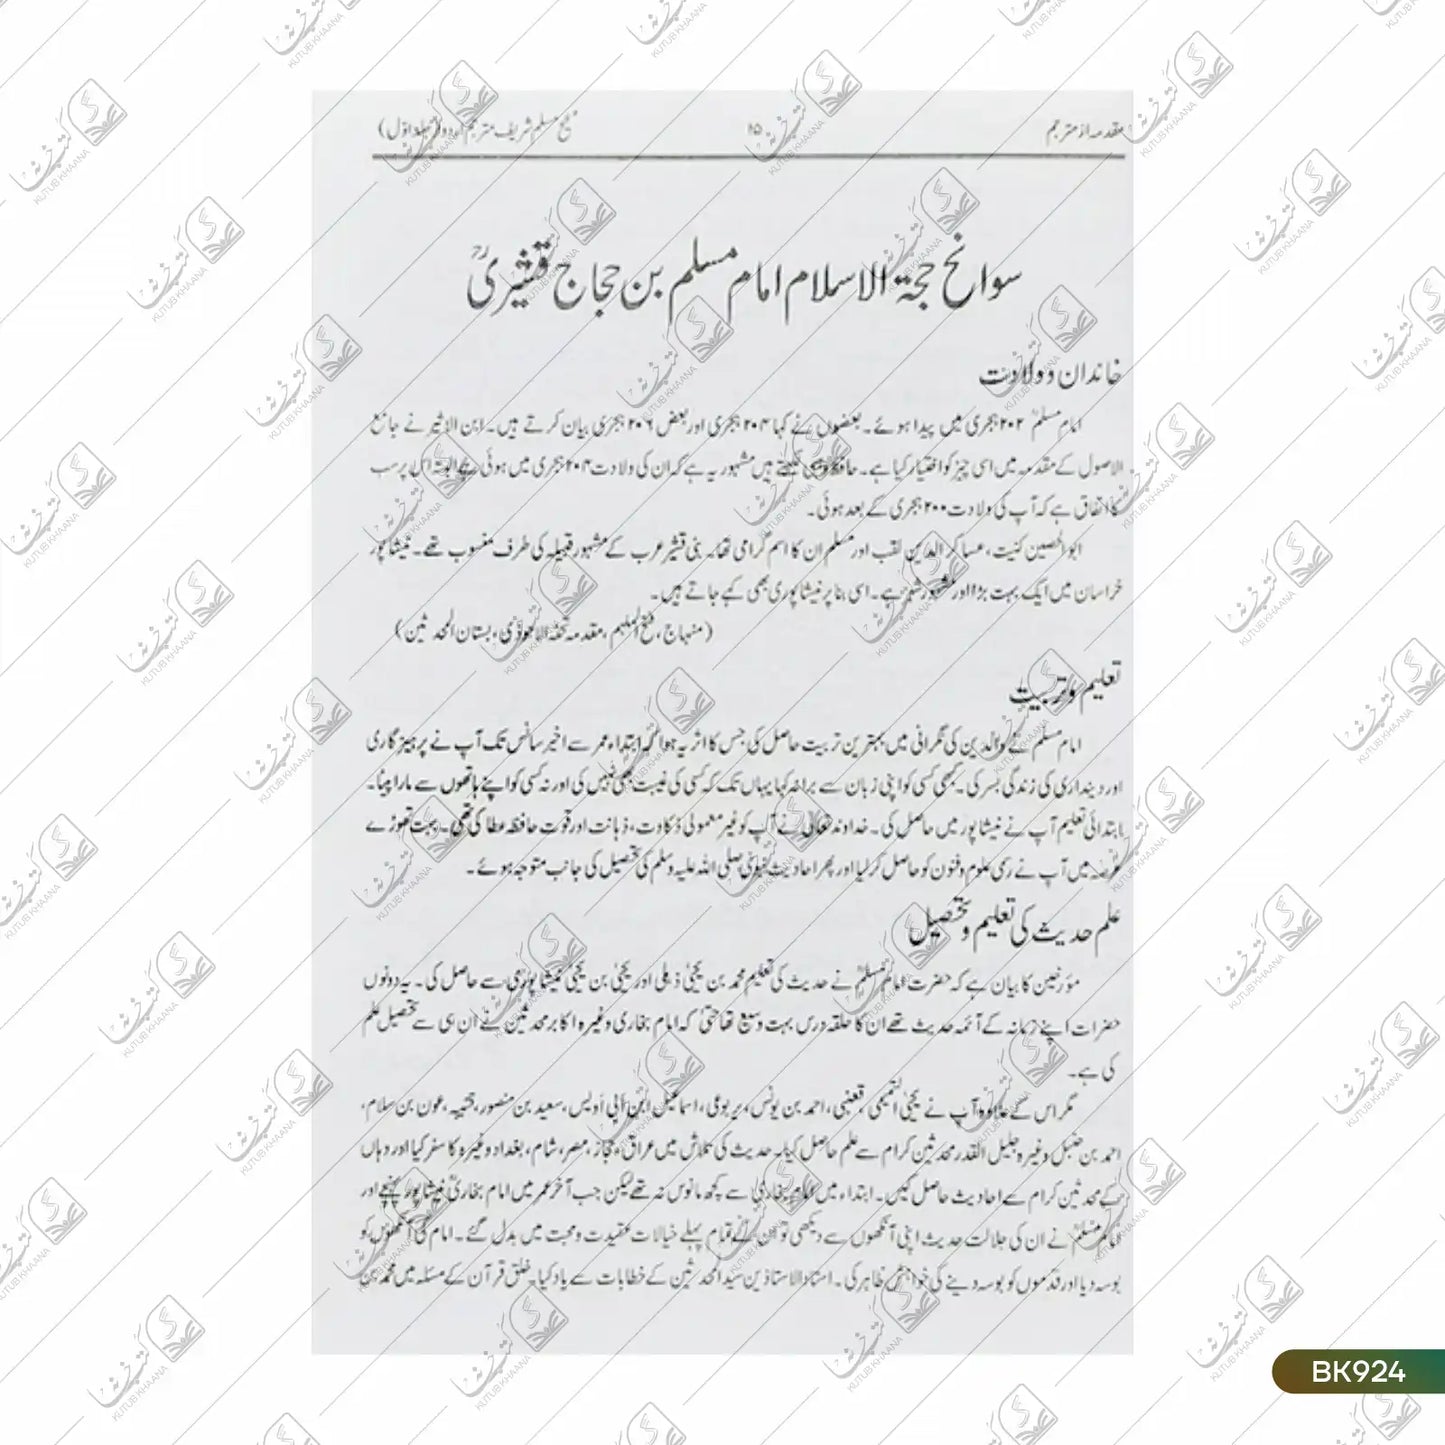 مقدمہ از مترجم ۱۵ صحیح مسلم شریف مترجم اردو (جلد اوّل)
سوانح حجۃ الاسلام امام مسلم بن حجاج قشیریؒ
خاندان و ولادت
امام مسلمؒ ۲۰۲ ہجری میں پیدا ہوئے۔ بعضوں نے کہا ۲۰۴ ہجری اور بعض ۲۰۶ ہجری بیان کرتے ہیں۔ ابن الاثیر نے جامع
الاصول کے مقدمہ میں اسی چیز کو اختیار کیا ہے۔ حافظ ذہبی لکھتے ہیں مشہور یہ ہے کہ ان کی ولادت ۲۰۴ ہجری میں ہوئی ہے البتہ اس پر سب
کا اتفاق ہے کہ آپ کی ولادت ۲۰۰ ہجری کے بعد ہوئی۔
ابوالحسین کنیت، عساکر الدین لقب اور مسلم ان کا اسم گرامی تھا۔ بنی قشیر عرب کے مشہور قبیلہ کی طرف منسوب تھے۔ نیشاپور
خراسان میں ایک بہت بڑا اور مشہور شہر ہے۔ اسی بنا پر نیشاپوری بھی کہے جاتے ہیں۔
(منہاج، فتح الملہم، مقدمہ تحفۃ الاحوذی، بستان المحدثین)
تعلیم و تربیت
امام مسلم نے والدین کی نگرانی میں بہترین تربیت حاصل کی جس کا اثر یہ ہوا کہ ابتداء عمر سے اخیر سانس تک آپ نے پرہیزگاری
اور دینداری کی زندگی بسر کی۔ کبھی کسی کو اپنی زبان سے برا نہ کہا یہاں تک کہ کسی کی غیبت بھی نہیں کی اور نہ کسی کو اپنے ہاتھوں سے مارا پیٹا۔
ابتدائی تعلیم آپ نے نیشاپور میں حاصل کی۔ خداوند تعالیٰ نے آپ کو غیر معمولی ذکاوت، ذہانت اور قوت حافظہ عطا کی تھی۔ بہت تھوڑے
عرصہ میں آپ نے رسمی علوم و فنون کو حاصل کر لیا اور پھر احادیث نبوی صلی اللہ علیہ وسلم کی تحصیل کی جانب متوجہ ہوئے۔
علم حدیث کی تعلیم و تحصیل
مؤرخین کا بیان ہے کہ حضرت امام مسلمؒ نے حدیث کی تعلیم محمد بن یحییٰ ذہلی اور یحییٰ بن یحییٰ نیشاپوری سے حاصل کی۔ یہ دونوں
حضرات اپنے زمانہ کے آئمہ حدیث تھے ان کا حلقہ درس بہت وسیع تھا حتیٰ کہ امام بخاری وغیرہ اکابر محدثین نے ان ہی سے تحصیل علم
کی ہے۔
مگر اس کے علاوہ آپ نے یحییٰ التمیمی، قعنبی، احمد بن یونس، یربوعی، اسماعیل ابن ابی اُویس، سعید بن منصور، قتیبہ، عون بن سلام،
احمد بن حنبل وغیرہ جلیل القدر محدثین کرام سے علم حاصل کیا۔ حدیث کی تلاش میں عراق، حجاز، مصر، شام، بغداد وغیرہ کا سفر کیا اور وہاں
کے محدثین کرام سے احادیث حاصل کیں۔ ابتداء میں امام بخاری سے کچھ مانوس نہ تھے لیکن جب آخر عمر میں امام بخاریؒ نیشاپور پہنچے اور
امام مسلمؒ نے ان کی جلالت حدیث اپنی آنکھوں سے دیکھی تو ان کے تمام پہلے خیالات عقیدت و محبت میں بدل گئے۔ امام کی آنکھوں کو
بوسہ دیا اور قدموں کو بوسہ دینے کی خواہش ظاہر کی۔ استاذ الاستاذین سید المحدثین کے خطابات سے یاد کیا۔ خلق قرآن کے مسئلہ میں محمد بن
کتب خانہ
KUTUB KHAANA
BK924